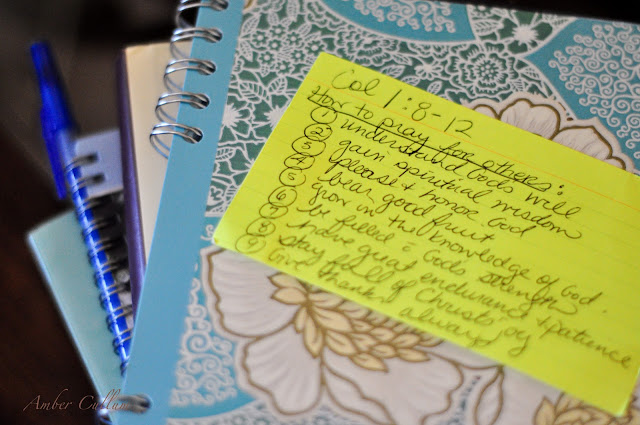 Col 1:8-12
How to pray for others:
① understand Gods will
② gain spiritual wisdom
③ please + honor God
④ bear good fruit
⑤ grow in the knowledge of God.
⑥ be filled c̄ Gods strength
⑦ have great endurance + patience
⑧ stay full of Christs joy
⑨ Give thanks always
Amber